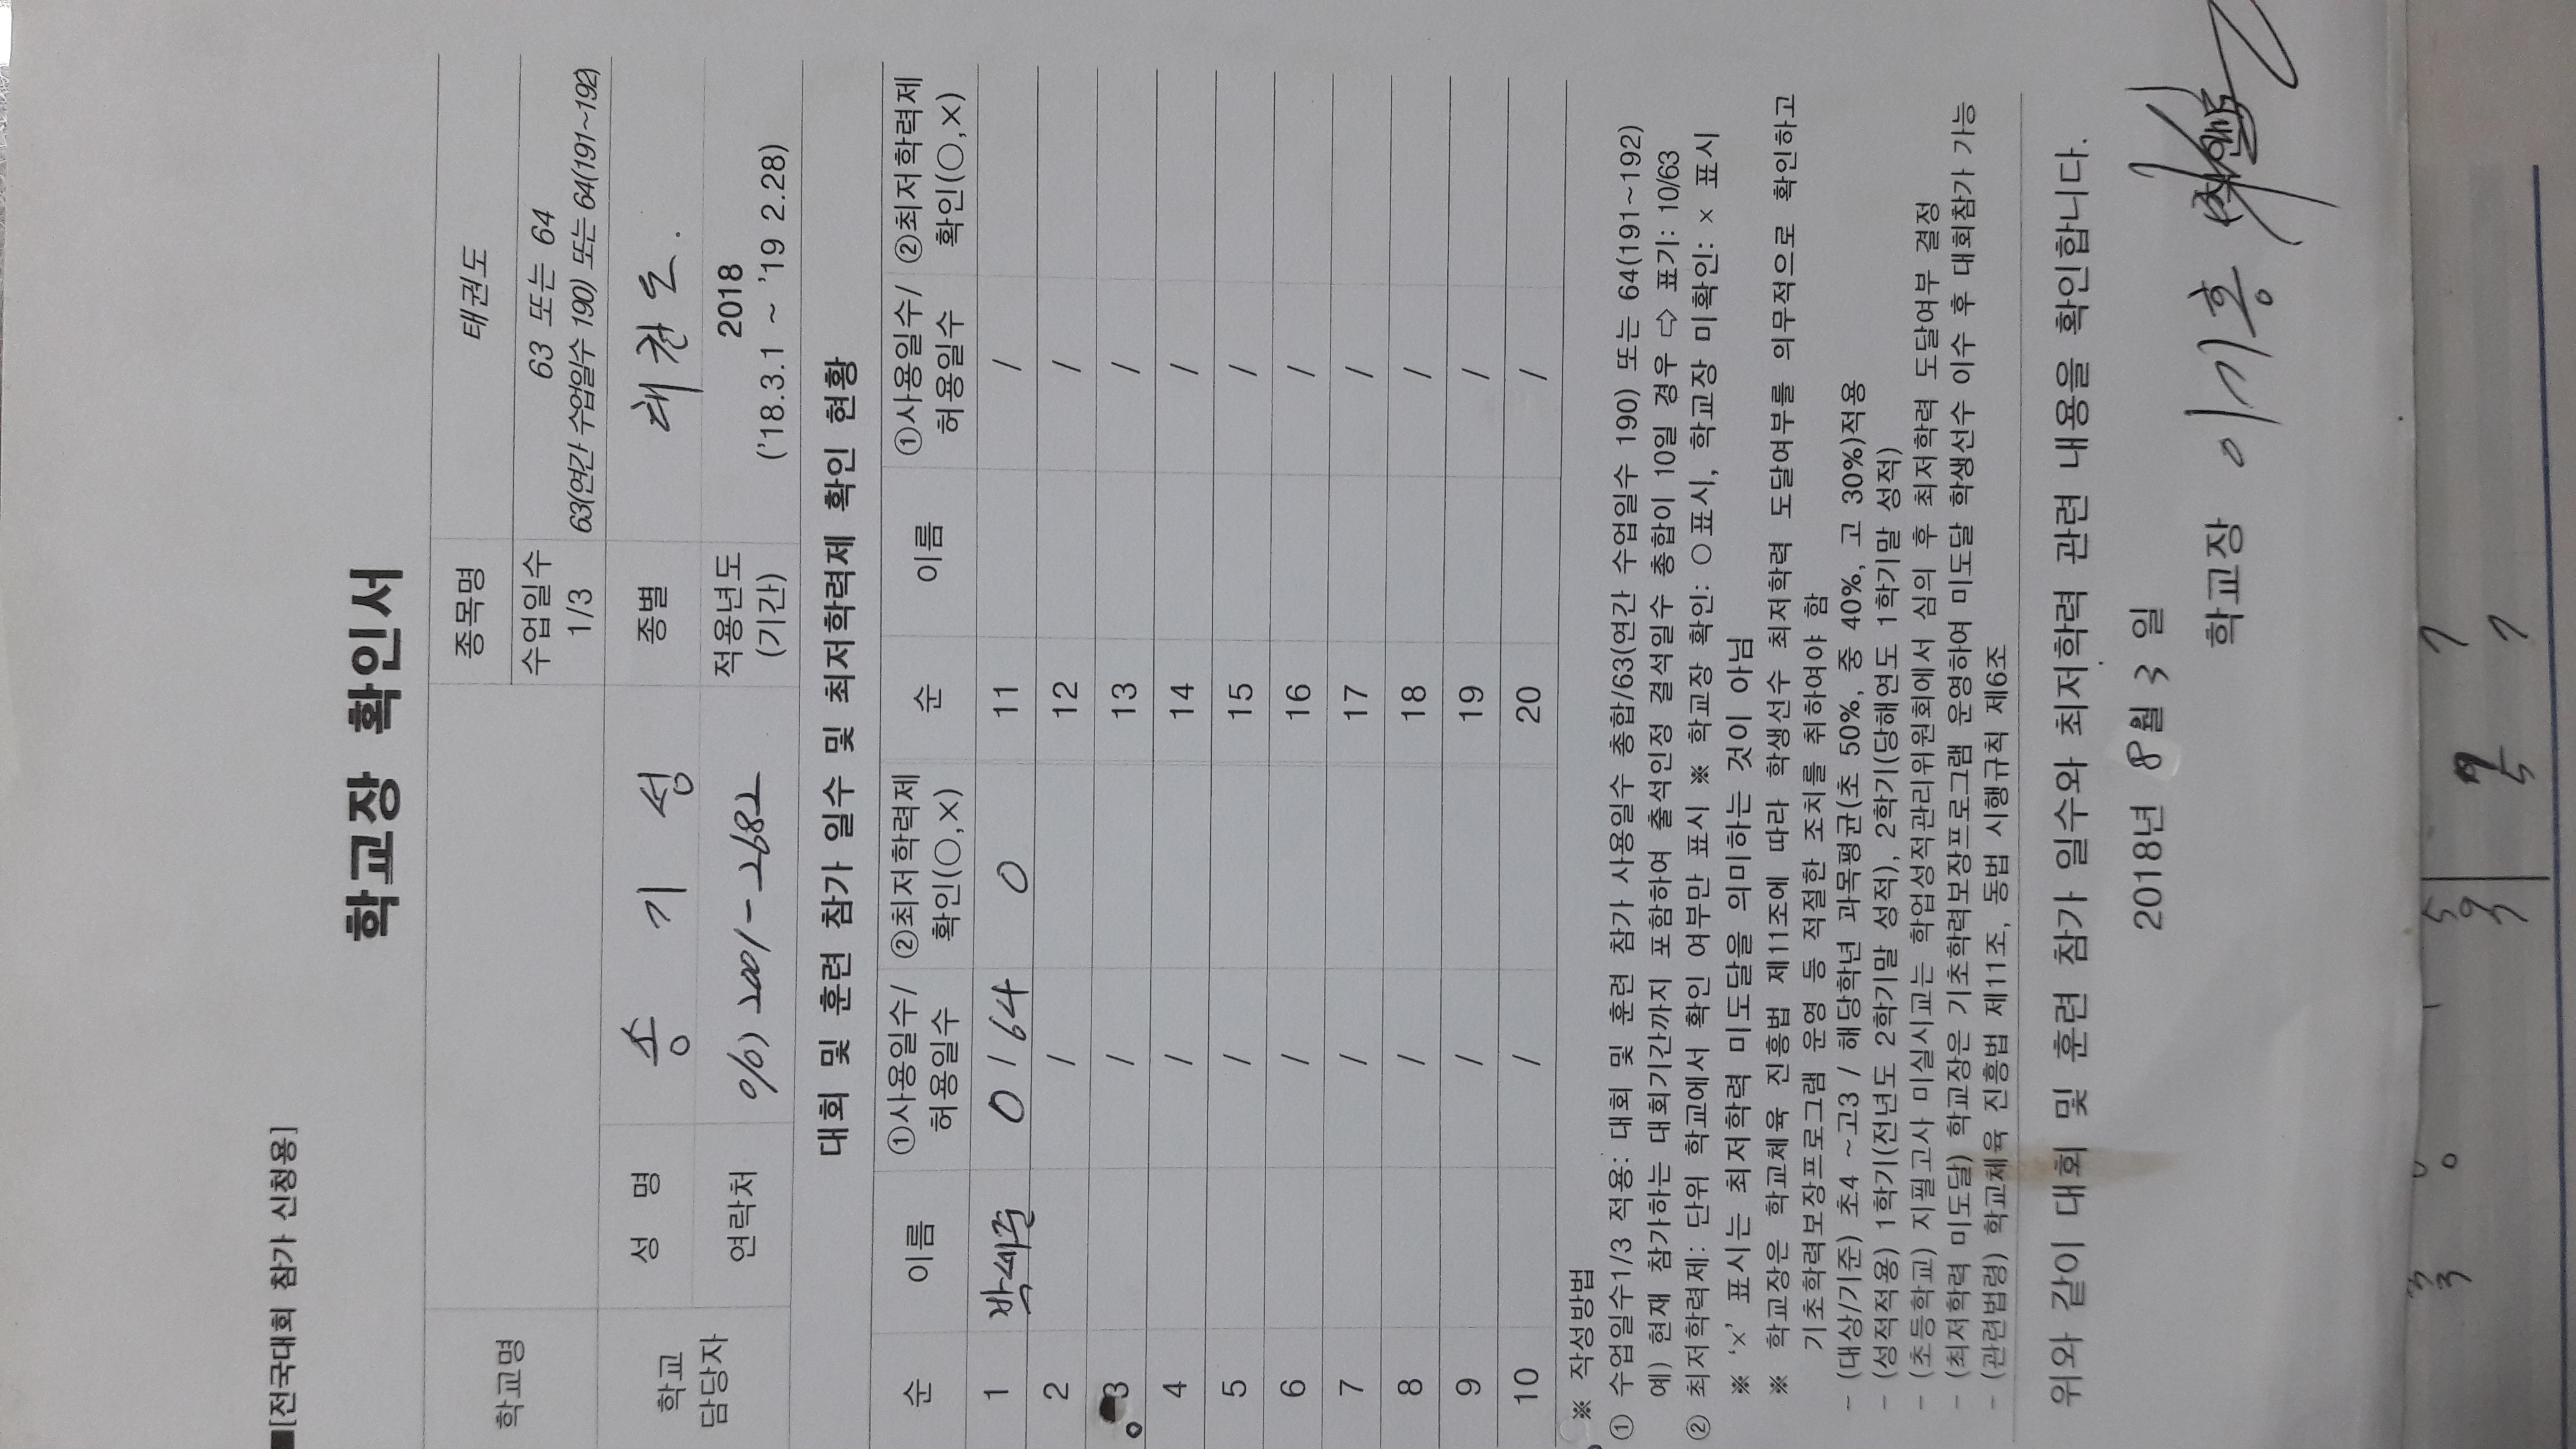 ■[전국대회 참가 신청용]
학교장 확인서
학교명
종목명
태권도
수업일수
1/3
63 또는 64
63(연간 수업일수 190) 또는 64(191~192)
학교
담당자
성 명
송 기 성
종별
태권도.
연락처
010) 2001-2682
적용년도
(기간)
2018
('18.3.1 ~ '19 2.28)
대회 및 훈련 참가 일수 및 최저학력제 확인 현황
순 이름 ①사용일수/허용일수 ②최저학력제 확인(○,×) 순 이름 ①사용일수/허용일수 ②최저학력제 확인(○,×)
1 박세준 0 / 64 0 11 /
2 / 12 /
3 / 13 /
4 / 14 /
5 / 15 /
6 / 16 /
7 / 17 /
8 / 18 /
9 / 19 /
10 / 20 /
※ 작성방법
① 수업일수1/3 적용: 대회 및 훈련 참가 사용일수 총합/63(연간 수업일수 190) 또는 64(191~192)
예) 현재 참가하는 대회기간까지 포함하여 출석인정 결석일수 총합이 10일 경우 ⇨ 표기: 10/63
② 최저학력제: 단위 학교에서 확인 여부만 표시 ※ 학교장 확인: ○표시, 학교장 미확인: × 표시
※ '×' 표시는 최저학력 미도달을 의미하는 것이 아님
※ 학교장은 학교체육 진흥법 제11조에 따라 학생선수 최저학력 도달여부를 의무적으로 확인하고
기초학력보장프로그램 운영 등 적절한 조치를 취하여야 함
- (대상/기준) 초4 ~고3 / 해당학년 과목평균(초 50%, 중 40%, 고 30%)적용
- (성적적용) 1학기(전년도 2학기말 성적), 2학기(당해연도 1학기말 성적)
- (초등학교) 지필고사 미실시교는 학업성적관리위원회에서 심의 후 최저학력 도달여부 결정
- (최저학력 미도달) 학교장은 기초학력보장프로그램 운영하여 미도달 학생선수 이수 후 대회참가 가능
- (관련법령) 학교체육 진흥법 제11조, 동법 시행규칙 제6조
위와 같이 대회 및 훈련 참가 일수와 최저학력 관련 내용을 확인합니다.
2018년 8월 3일
학교장 이기홍